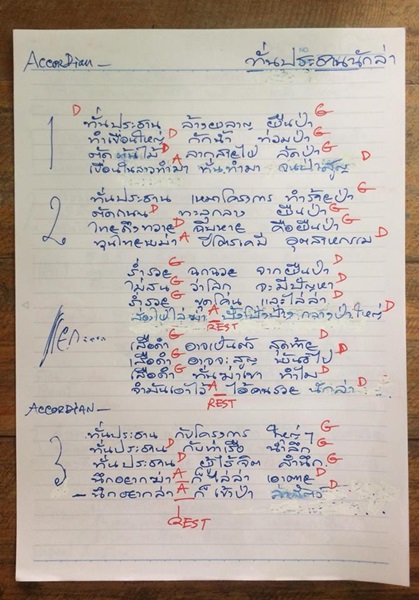 ACCORDIAN — ท่านประธานนักล่า
D G
1 ท่านประธาน ล้างผลาญ ผืนป่า
D G
ทำเขื่อนใหญ่ กักน้ำ ท่วมป่า
D G
ตัดต้นไม้ ลากสายไป ลัดป่า
A D
เขื่อนในลาวทำมา ท่านทำมา จนป่าสูญ
G
2 ท่านประธาน เหมาโครงการ ทำร้ายป่า
D G
ตัดถนน ทะลุกลาง ผืนป่า
D G
ไทยถึงทวาย คือผืนป่า
A D
อุตสาหกรรม
G D
ร่ำรวย ฉกฉวย จากผืนป่า
G D
ไม่สน ว่าโลก จะมีปัญหา
G D
ร่ำรวย ขุดโค่น และไล่ล่า
A D
กลางป่าใหญ่
REST
G D
เสือดำ อาจเป็นตัว สุดท้าย
G D
เสือดำ อาจจะสูญ พันธุ์ไป
G D
เสือดำ ท่านฆ่าเขา ทำไม
A D
จำมันเอาไว้ ไอ้คนรวย นักล่า
REST
ACCORDIAN —
G
3 ท่านประธาน กับโครงการ ใหญ่ๆ
D G
ท่านประธาน กับท่าเรือ น้ำลึก
D G
ท่านประธาน ผู้ไร้จิต สำนึก
A D
นึกอยากฆ่า ก็ไล่ล่า เอาตาย
A
— นึกอยากล่า ก็เข้าป่า ล่าสัตว์
REST